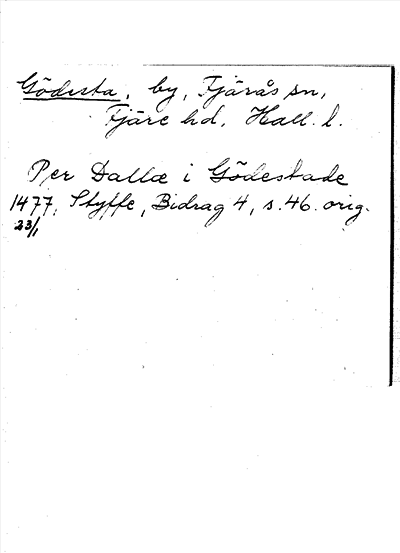 Gödesta, by, Fjärås sn,
Fjäre hd. Hall. l.
Per Dallæ i Gödestade
1477, Styffe, Bidrag 4, s. 46. orig.
23/1